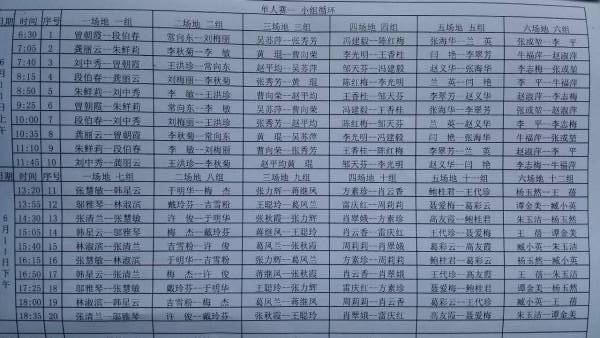 单人赛一 小组循环
日期 时间 序号 一场地 一组 二场地 二组 三场地 三组 四场地 四组 五场地 五组 六场地 六组
6月11日上午
6:30 1 曾朝霞—段伯春 常向东—刘梅丽 吴苏萍—张秀芳 冯建毅—陈红梅 张海华—兰 英 张成堃—李 平
7:05 2 龚丽云—朱鲜莉 李秋菊—李 敏 黄 琨—曹向荣 李光明—王香柱 闫 艳—李翠芳 牛福萍—赵淑萍
7:40 3 刘中秀—曾朝霞 王洪珍—常向东 赵平均—吴苏萍 邹天芬—冯建毅 赵义华—张海华 李志梅—张成堃
8:15 4 段伯春—龚丽云 刘梅丽—李秋菊 张秀芳—黄 琨 陈红梅—李光明 兰 英—闫 艳 李 平—牛福萍
8:50 5 朱鲜莉—刘中秀 李 敏—王洪珍 曹向荣—赵平均 王香柱—邹天芬 李翠芳—赵义华 赵淑萍—李志梅
9:25 6 曾朝霞—龚丽云 常向东—李秋菊 吴苏萍—黄 琨 冯建毅—李光明 张海华—闫 艳 张成堃—牛福萍
10:00 7 段伯春—刘中秀 刘梅丽—王洪珍 张秀芳—赵平均 陈红梅—邹天芬 兰 英—赵义华 李 平—李志梅
10:35 8 龚丽云—曾朝霞 李秋菊—常向东 黄 琨—吴苏萍 李光明—冯建毅 闫 艳—张海华 牛福萍—张成堃
11:10 9 朱鲜莉—段伯春 李 敏—刘梅丽 曹向荣—张秀芳 王香柱—陈红梅 李翠芳—兰 英 赵淑萍—李 平
11:45 10 刘中秀—龚丽云 王洪珍—李秋菊 赵平均—黄 琨 邹天芬—李光明 赵义华—闫 艳 李志梅—牛福萍
日期 时间 序号 一场地 七组 二场地 八组 三场地 九组 四场地 十组 五场地 十一组 六场地 十二组
6月11日下午
13:20 11 张慧敏—韩星云 于明华—梅 杰 张力辉—蒋继凤 方素珍—肖云香 鲍桂君—王代珍 杨玉然—王 蓓
13:55 12 邬雅琴—林淑滨 戴玲芬—吉雪粉 王聪玲—葛凤兰 雷庆红—周莉莉 聂爱梅—葛彩云 谭金美—臧小英
14:30 13 张清兰—张慧敏 许 俊—于明华 张秋霞—张力辉 肖翠娥—方素珍 高友霞—鲍桂君 朱玉洁—杨玉然
15:05 14 韩星云—邬雅琴 梅 杰—戴玲芬 蒋继凤—王聪玲 肖云香—雷庆红 王代珍—聂爱梅 王 蓓—谭金美
15:40 15 林淑滨—张清兰 吉雪粉—许 俊 葛凤兰—张秋霞 周莉莉—肖翠娥 葛彩云—高友霞 臧小英—朱玉洁
16:15 16 张慧敏—林淑滨 于明华—吉雪粉 张力辉—葛凤兰 方素珍—周莉莉 鲍桂君—葛彩云 杨玉然—臧小英
16:50 17 韩星云—张清兰 梅 杰—许 俊 蒋继凤—张秋霞 肖云香—肖翠娥 王代珍—高友霞 王 蓓—朱玉洁
17:25 18 邬雅琴—张慧敏 戴玲芬—于明华 王聪玲—张力辉 雷庆红—方素珍 聂爱梅—鲍桂君 谭金美—杨玉然
18:00 19 林淑滨—韩星云 吉雪粉—梅 杰 葛凤兰—蒋继凤 周莉莉—肖云香 葛彩云—王代珍 臧小英—王 蓓
18:35 20 张清兰—邬雅琴 许 俊—戴玲芬 张秋霞—王聪玲 肖翠娥—雷庆红 高友霞—聂爱梅 朱玉洁—谭金美